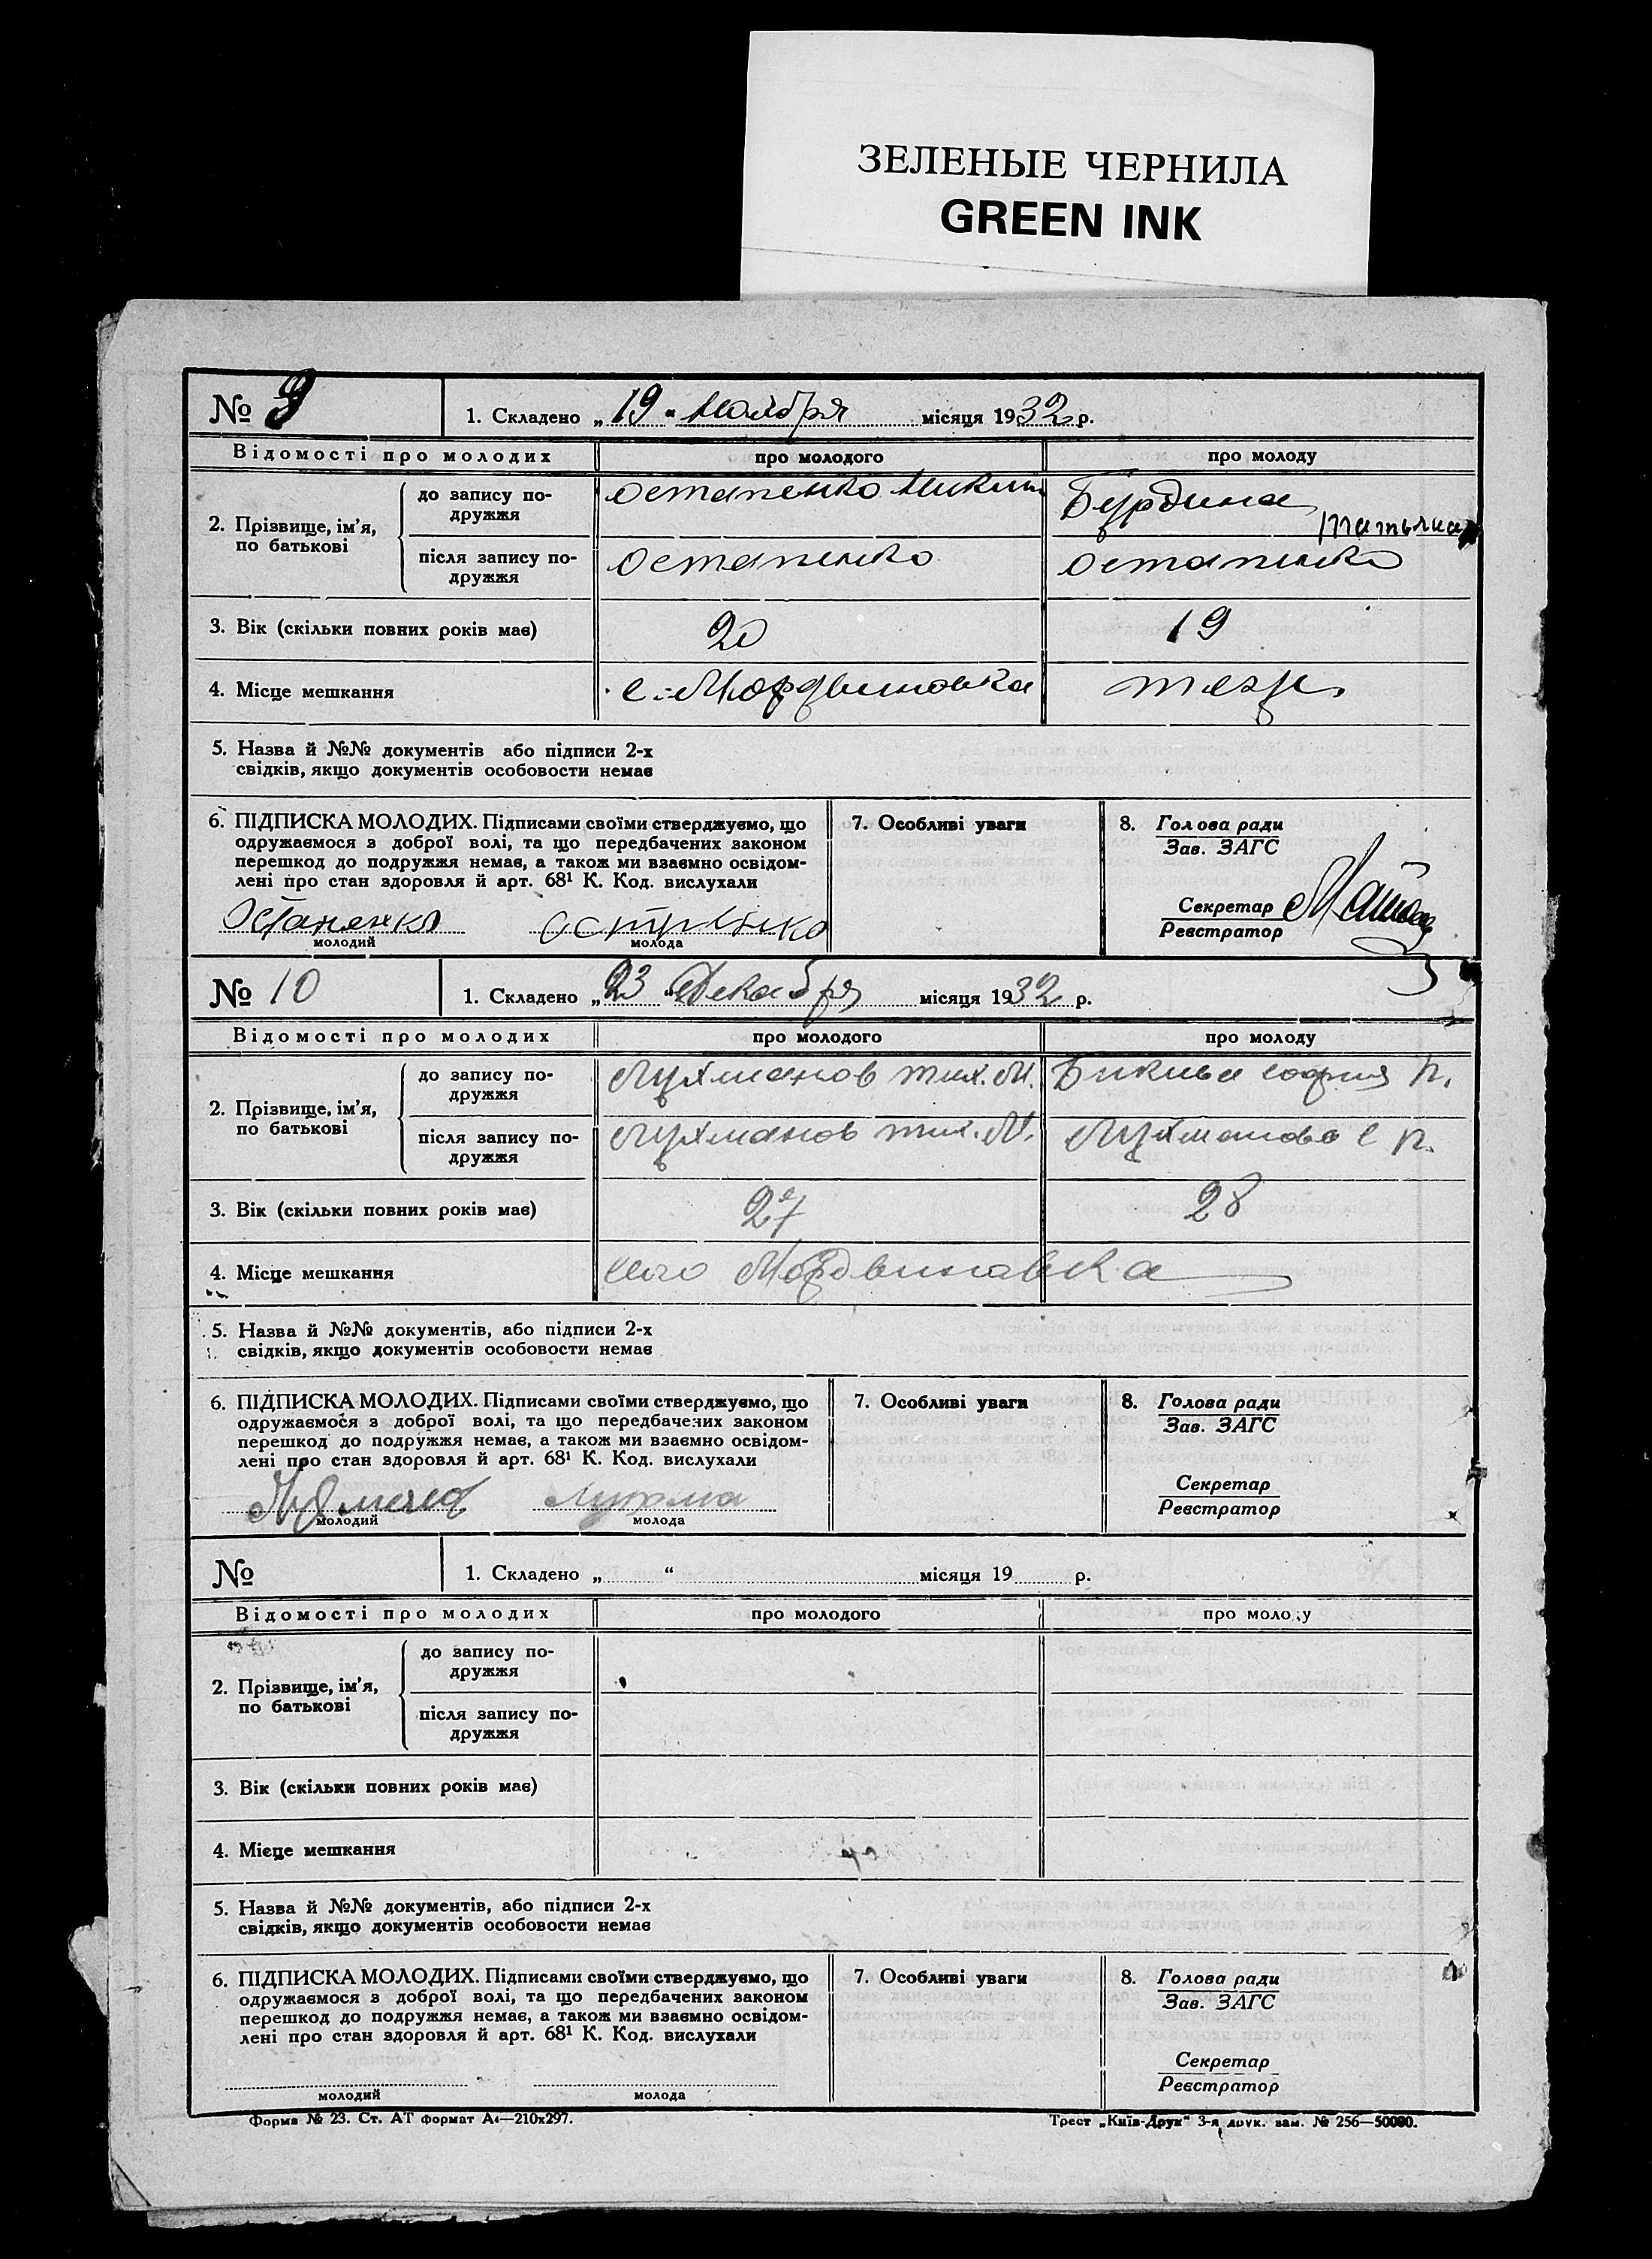 ЗЕЛЕНЫЕ ЧЕРНИЛА
GREEN INK
№ 9
1. Складено „ 19 “ Ноября місяця 1932 р.
Відомості про молодих про молодого про молоду
2. Прізвище, ім’я, по батькові
до запису подружжя Остапенко Никит Бурдина Татьяна
після запису подружжя Остапенко Остапенко
3. Вік (скільки повних років має) 20 19
4. Місце мешкання с. Мордвиновка тоже
5. Назва й №№ документів або підписи 2-х
свідків, якщо документів особовости немає
6. ПІДПИСКА МОЛОДИХ. Підписами своїми стверджуємо, що
одружаємося з доброї волі, та що передбачених законом
перешкод до подружжя немає, а також ми взаємно освідом-
лені про стан здоровля й арт. 68¹ К. Код. вислухали
Остапенко
молодий молода
7. Особливі уваги
8. Голова ради
Зав. ЗАГС
Секретар
Реєстратор
№ 10
1. Складено „ 23 “ Декабря місяця 1932 р.
Відомості про молодих про молодого про молоду
2. Прізвище, ім’я, по батькові
до запису подружжя Лухманов тих. М. София П.
після запису подружжя Лухманов тих. М. Лухманова С П.
3. Вік (скільки повних років має) 27 28
4. Місце мешкання село Мордвинавка
5. Назва й №№ документів, або підписи 2-х
свідків, якщо документів особовости немає
6. ПІДПИСКА МОЛОДИХ. Підписами своїми стверджуємо, що
одружаємося з доброї волі, та що передбачених законом
перешкод до подружжя немає, а також ми взаємно освідом-
лені про стан здоровля й арт. 68¹ К. Код. вислухали
Лухма
молодий молода
7. Особливі уваги
8. Голова ради
Зав. ЗАГС
Секретар
Реєстратор
№
1. Складено „ “ місяця 19 р.
Відомості про молодих про молодого про молоду
2. Прізвище, ім’я, по батькові
до запису подружжя
після запису подружжя
3. Вік (скільки повних років має)
4. Місце мешкання
5. Назва й №№ документів, або підписи 2-х
свідків, якщо документів особовости немає
6. ПІДПИСКА МОЛОДИХ. Підписами своїми стверджуємо, що
одружаємося з доброї волі, та що передбачених законом
перешкод до подружжя немає, а також ми взаємно освідом-
лені про стан здоровля й арт. 68¹ К. Код. вислухали
молодий молода
7. Особливі уваги
8. Голова ради
Зав. ЗАГС
Секретар
Реєстратор
Форма № 23. Ст. АТ формат А4—210x297. Трест „Київ-Друк“ 3-я друк. зам. № 256—50000.